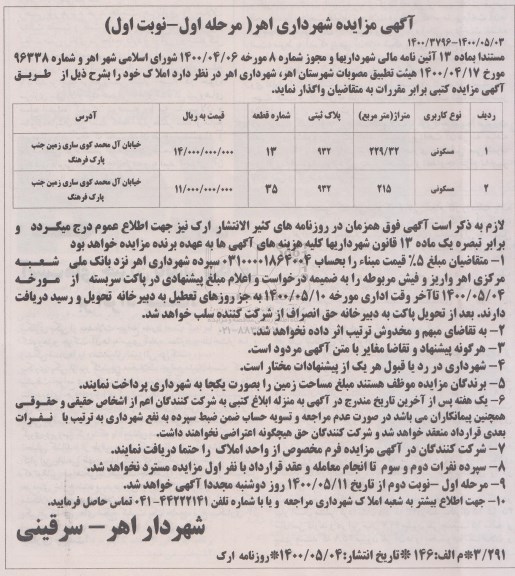 آگهی مزایده شهرداری اهر( مرحله اول-نوبت اول)
۱۴۰۰/۳۷۹۶-۱۴۰۰/۰۵/۰۳
مستندا بماده ۱۳ آئین نامه مالی شهرداریها و مجوز شماره ۸ مورخه ۱۴۰۰/۰۴/۰۶ شورای اسلامی شهر اهر و شماره ۹۶۳۳۸
مورخ ۱۴۰۰/۰۴/۱۷ هیئت تطبیق مصوبات شهرستان اهر، شهرداری اهر در نظر دارد املاک خود را بشرح ذیل از طریق
آگهی مزایده کتبی برابر مقررات به متقاضیان واگذار نماید.
ردیف نوع کاربری متراژ(متر مربع) پلاک ثبتی شماره قطعه قیمت به ریال آدرس
۱ مسکونی ۲۲۹/۳۲ ۹۳۲ ۱۳ ۱۴/۰۰۰/۰۰۰/۰۰۰ خیابان آل محمد کوی ساری زمین جنب
پارک فرهنگ
۲ مسکونی ۲۱۵ ۹۳۲ ۳۵ ۱۱/۰۰۰/۰۰۰/۰۰۰ خیابان آل محمد کوی ساری زمین جنب
پارک فرهنگ
لازم به ذکر است آگهی فوق همزمان در روزنامه های کثیر الانتشار ارک نیز جهت اطلاع عموم درج میگردد و
برابر تبصره یک ماده ۱۳ قانون شهرداریها کلیه هزینه های آگهی ها به عهده برنده مزایده خواهد بود
۱- متقاضیان مبلغ ۵٪ قیمت میناء را بحساب ۰۳۱۰۰۰۰۱۸۶۴۰۰۴ سپرده شهرداری اهر نزد بانک ملی شعبه
مرکزی اهر واریز و فیش مربوطه را به ضمیمه درخواست و اعلام مبلغ پیشنهادی در پاکت سربسته از مورخه
۱۴۰۰/۰۵/۰۴ تا آخر وقت اداری مورخه ۱۴۰۰/۰۵/۱۰ به جز روزهای تعطیل به دبیرخانه تحویل و رسید دریافت
دارند. بعد از تحویل پاکت به دبیرخانه حق انصراف از شرکت کننده سلب خواهد شد.
۲- به تقاضای مبهم و مخدوش ترتیب اثر داده نخواهد شد.
۳- هرگونه پیشنهاد و تقاضا مغایر با متن آگهی مردود است.
۴- شهرداری در رد یا قبول هر یک از پیشنهادات مختار است.
۵- برندگان مزایده موظف هستند مبلغ مساحت زمین را بصورت یکجا به شهرداری پرداخت نمایند.
۶- یک هفته پس از آخرین تاریخ مندرج در آگهی به منزله ابلاغ کتبی به شرکت کنندگان اعم از اشخاص حقیقی و حقوقی
همچنین پیمانکاران می باشد در صورت عدم مراجعه و تسویه حساب ضمن ضبط سپرده به نفع شهرداری به ترتیب با نفرات
بعدی قرارداد منعقد خواهد شد و شرکت کنندگان حق هیچگونه اعتراضی نخواهند داشت.
۷- شرکت کنندگان در آگهی مزایده فرم مخصوص از واحد املاک را حتما دریافت نمایند.
۸- سپرده نفرات دوم و سوم تا انجام معامله و عقد قرارداد با نفر اول مزایده مسترد نخواهد شد.
۹- مرحله اول -نوبت دوم از تاریخ ۱۴۰۰/۰۵/۱۱ روز دوشنبه مجددا آگهی خواهد شد.
۱۰- جهت اطلاع بیشتر به شعبه املاک شهرداری مراجعه و یا با شماره تلفن ۴۴۲۲۲۱۴۱-۰۴۱ تماس حاصل فرمایید.
شهردار اهر- سرقینی
۳/۲۹۱*م الف:۱۴۶ *تاریخ انتشار:۱۴۰۰/۰۵/۰۴*روزنامه ارک